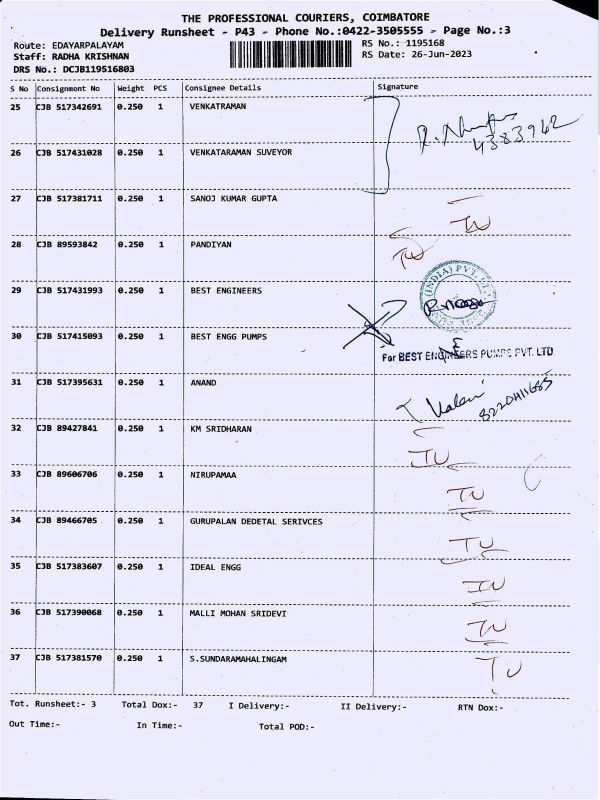 THE PROFESSIONAL COURIERS, COIMBATORE
Delivery Runsheet - P43 - Phone No.:0422-3505555 - Page No.:3
Route: EDAYARPALAYAM RS No.: 1195168
Staff: RADHA KRISHNAN RS Date: 26-Jun-2023
DRS No.: DCJB119516803
S No Consignment No Weight PCS Consignee Details Signature
25 CJB 517342691 0.250 1 VENKATRAMAN
4383942
26 CJB 517431028 0.250 1 VENKATARAMAN SUVEYOR
27 CJB 517381711 0.250 1 SANOJ KUMAR GUPTA
28 CJB 89593842 0.250 1 PANDIYAN
(INDIA) PVT. LTD
29 CJB 517431993 0.250 1 BEST ENGINEERS
30 CJB 517415093 0.250 1 BEST ENGG PUMPS
For BEST ENGINEERS PUMPS PVT. LTD
31 CJB 517395631 0.250 1 ANAND
32 CJB 89427841 0.250 1 KM SRIDHARAN
33 CJB 89606706 0.250 1 NIRUPAMAA
34 CJB 89466705 0.250 1 GURUPALAN DEDETAL SERIVCES
35 CJB 517383607 0.250 1 IDEAL ENGG
36 CJB 517390068 0.250 1 MALLI MOHAN SRIDEVI
37 CJB 517381570 0.250 1 S.SUNDARAMAHALINGAM
Tot. Runsheet:- 3 Total Dox:- 37 I Delivery:- II Delivery:- RTN Dox:-
Out Time:- In Time:- Total POD:-